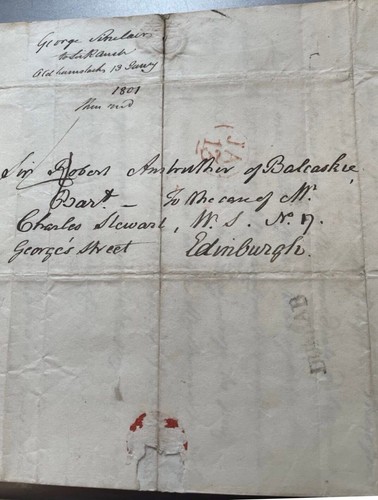 George Sinclair
to Sir R. Anstr
Oldhamstocks 13 Janry
1801
JA
13
Sir Robert Anstruther of Balcaskie,
Bart. — To the care of Mr.
Charles Stewart, W. S. No. 17.
George's Street Edinburgh.